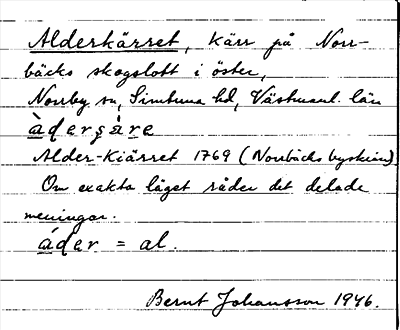 Alderkärret, kärr på Norr-
bäcks skogslott i öster,
Norrby sn, Simtuna hd, Västmanl. län
àderşàre
Alder-Kiärret 1769 (Norrbäcks byskrin)
Om exakta läget råder det delade
meningar.
áder = al.
Bernt Johansson 1946.